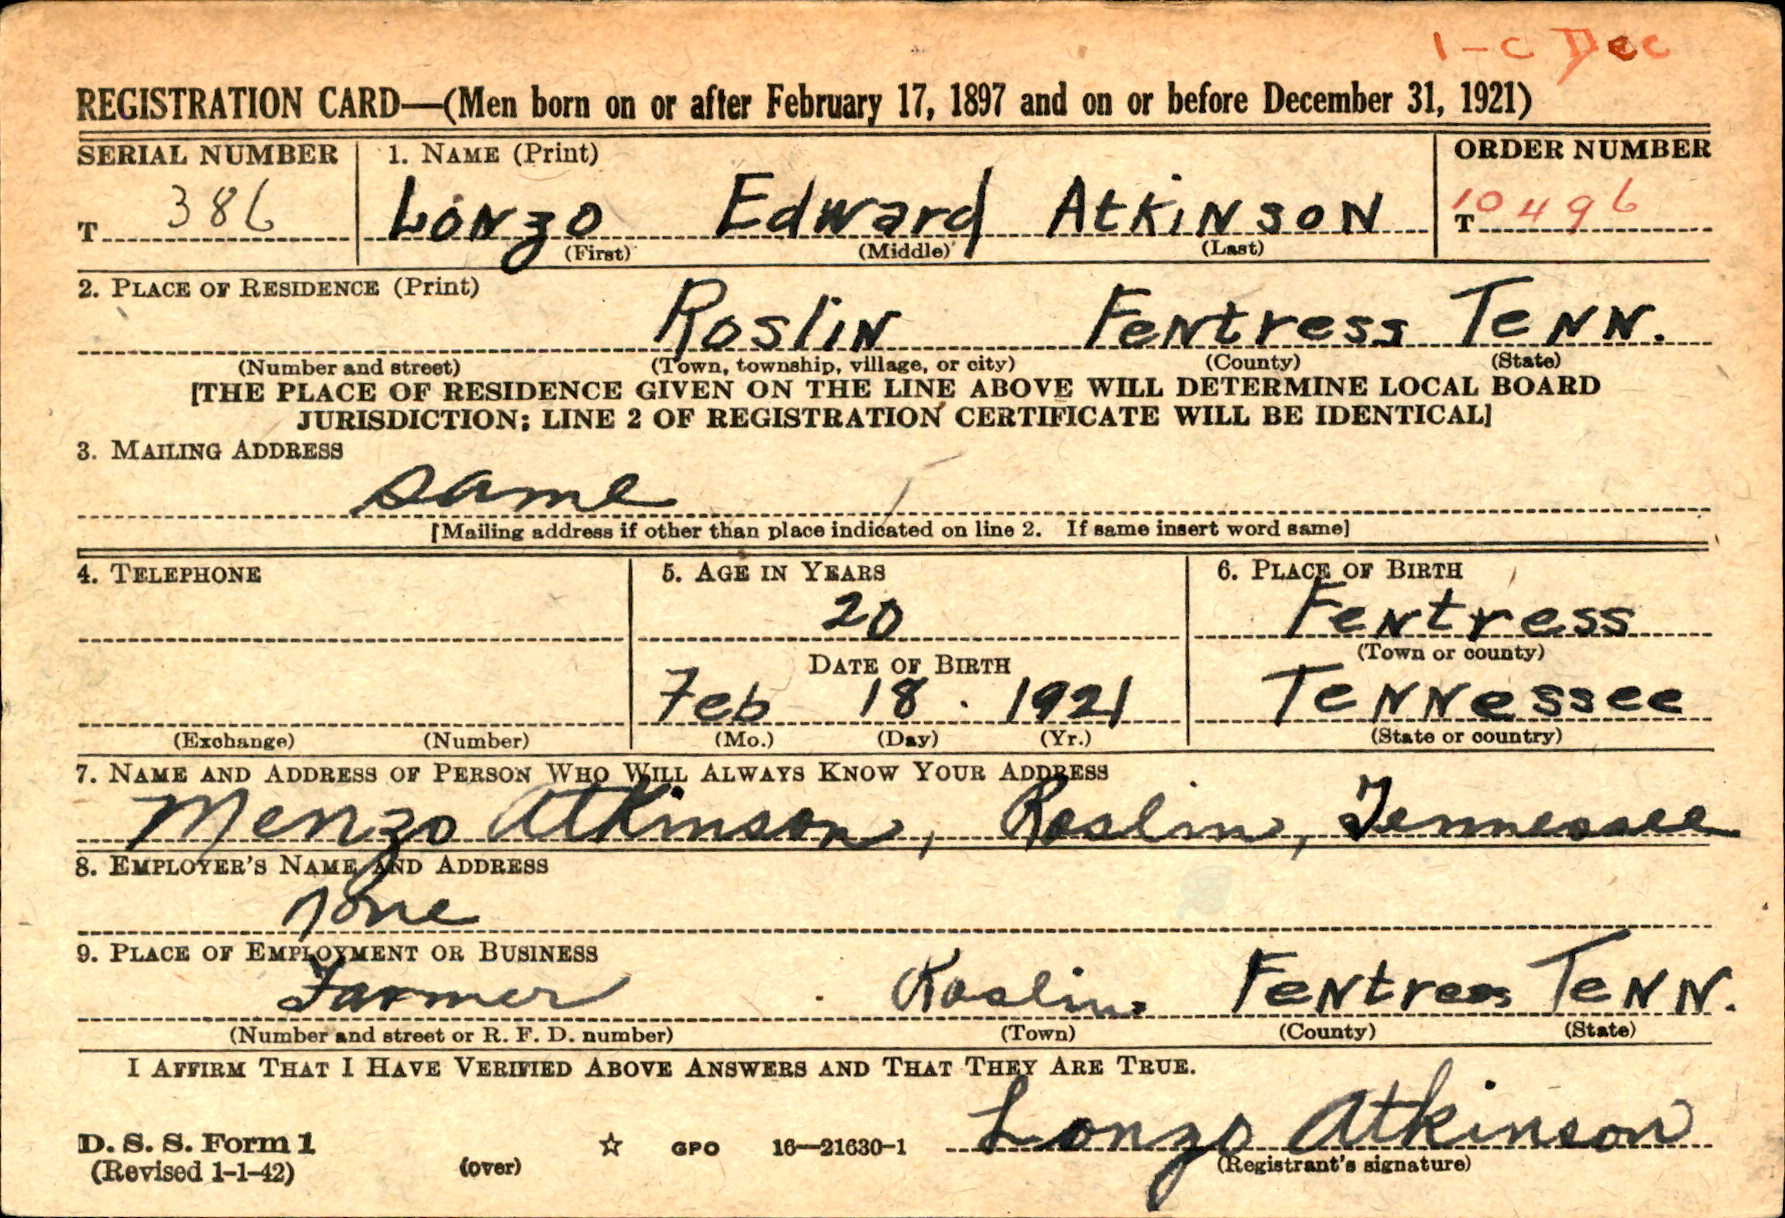 1-C Dec
REGISTRATION CARD—(Men born on or after February 17, 1897 and on or before December 31, 1921)
SERIAL NUMBER 1. NAME (Print) ORDER NUMBER
T 386 Lonzo Edward Atkinson T 10496
(First) (Middle) (Last)
2. PLACE OF RESIDENCE (Print)
Roslin Fentress Tenn.
(Number and street) (Town, township, village, or city) (County) (State)
[THE PLACE OF RESIDENCE GIVEN ON THE LINE ABOVE WILL DETERMINE LOCAL BOARD
JURISDICTION; LINE 2 OF REGISTRATION CERTIFICATE WILL BE IDENTICAL]
3. MAILING ADDRESS
Same
[Mailing address if other than place indicated on line 2. If same insert word same]
4. TELEPHONE 5. AGE IN YEARS 6. PLACE OF BIRTH
20 Fentress
DATE OF BIRTH (Town or county)
Feb 18. 1921 Tennessee
(Exchange) (Number) (Mo.) (Day) (Yr.) (State or country)
7. NAME AND ADDRESS OF PERSON WHO WILL ALWAYS KNOW YOUR ADDRESS
Menzo Atkinson, Roslin, Tennessee
8. EMPLOYER'S NAME AND ADDRESS
None
9. PLACE OF EMPLOYMENT OR BUSINESS
Farmer Roslin Fentress Tenn.
(Number and street or R. F. D. number) (Town) (County) (State)
I AFFIRM THAT I HAVE VERIFIED ABOVE ANSWERS AND THAT THEY ARE TRUE.
D. S. S. Form 1 ☆ GPO 16—21630-1 Lonzo Atkinson
(Revised 1-1-42) (over) (Registrant's signature)